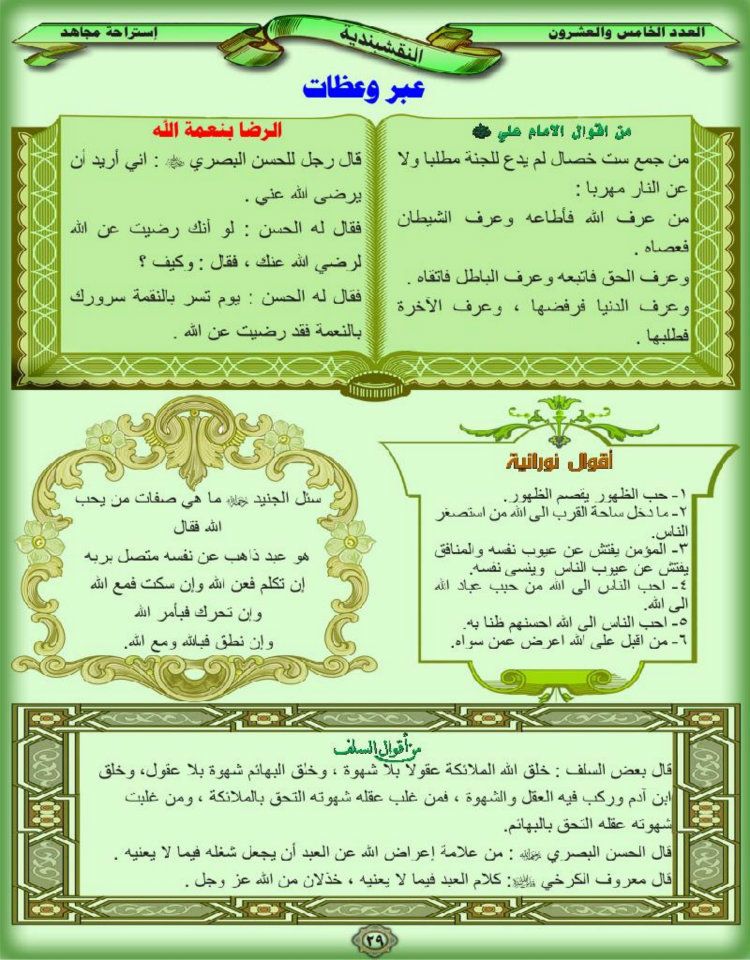 العدد الخامس والعشرون
النقشبندية
إستراحة مجاهد
عبر وعظات
من اقوال الامام علي
من جمع ست خصال لم يدع للجنة مطلبا ولا
عن النار مهربا :
من عرف الله فأطاعه وعرف الشيطان
فعصاه .
وعرف الحق فاتبعه وعرف الباطل فاتقاه .
وعرف الدنيا فرفضها ، وعرف الآخرة
فطلبها .
الرضا بنعمة الله
قال رجل للحسن البصري : اني أريد أن
يرضى الله عني .
فقال له الحسن : لو أنك رضيت عن الله
لرضي الله عنك ، فقال : وكيف ؟
فقال له الحسن : يوم تسر بالنقمة سرورك
بالنعمة فقد رضيت عن الله .
أقوال نورانية
١- حب الظهور يقصم الظهور.
٢- ما دخل ساحة القرب الى الله من استصغر
الناس.
٣- المؤمن يفتش عن عيوب نفسه والمنافق
يفتش عن عيوب الناس وينسى نفسه.
٤- احب الناس الى الله من حبب عباد الله
الى الله.
٥- احب الناس الى الله احسنهم ظنا به.
٦- من اقبل على الله اعرض عمن سواه.
سئل الجنيد ما هي صفات من يحب
الله فقال
هو عبد ذاهب عن نفسه متصل بربه
إن تكلم فعن الله وإن سكت فمع الله
وإن تحرك فبأمر الله
وإن نطق فبالله ومع الله.
من أقوال السلف
قال بعض السلف : خلق الله الملائكة عقولا بلا شهوة ، وخلق البهائم شهوة بلا عقول، وخلق
ابن آدم وركب فيه العقل والشهوة ، فمن غلب عقله شهوته التحق بالملائكة ، ومن غلبت
شهوته عقله التحق بالبهائم.
قال الحسن البصري : من علامة إعراض الله عن العبد أن يجعل شغله فيما لا يعنيه .
قال معروف الكرخي : كلام العبد فيما لا يعنيه ، خذلان من الله عز وجل .
٢٩